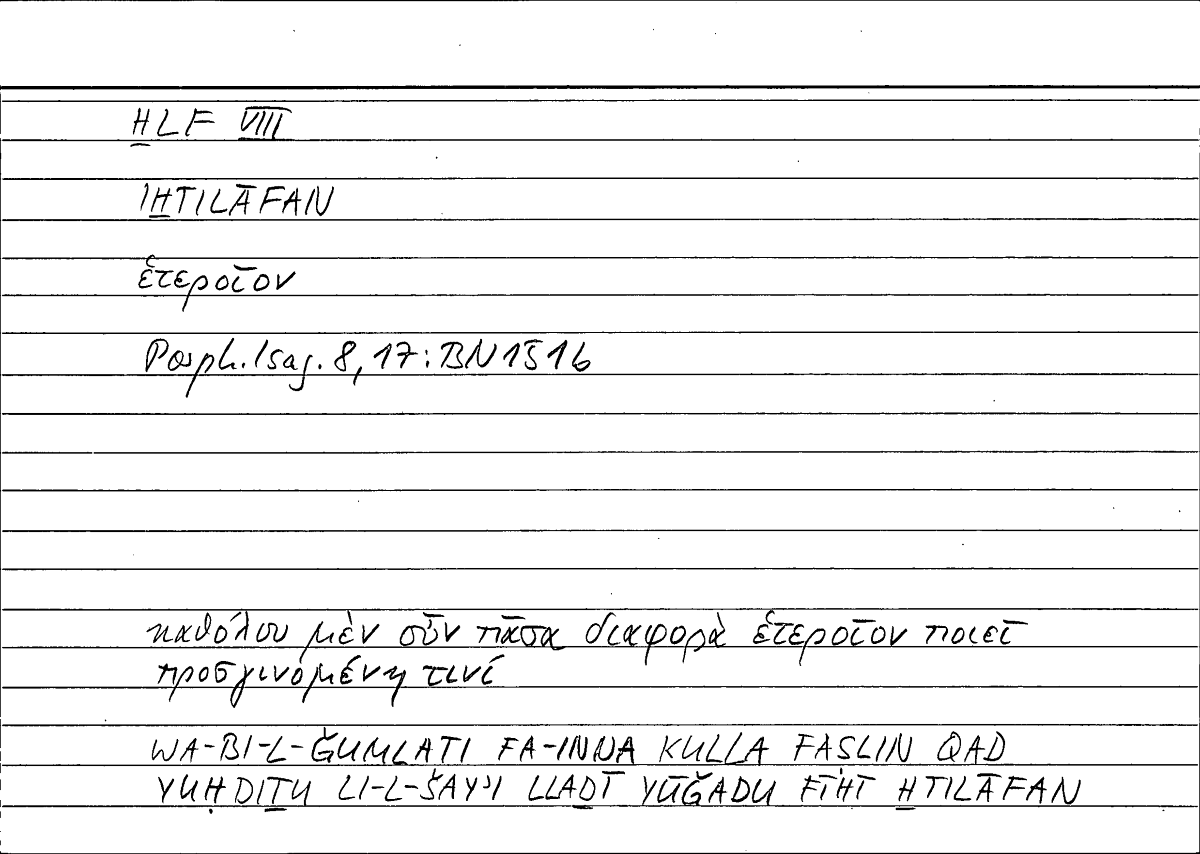 ḪLF VIII
IḪTILĀFAN
ἑτεροῖον
Porph. Isag. 8, 17: BN 151b
καθόλου μὲν οὖν πᾶσα διαφορὰ ἑτεροῖον ποιεῖ
προσγινομένη τινί
WA-BI-L-ǦUMLATI FA-INNA KULLA FAṢLIN QAD
YUḤDIṮU LI-L-ŠAYʾI LLAḎĪ YŪǦADU FĪHĪ ḪTILĀFAN